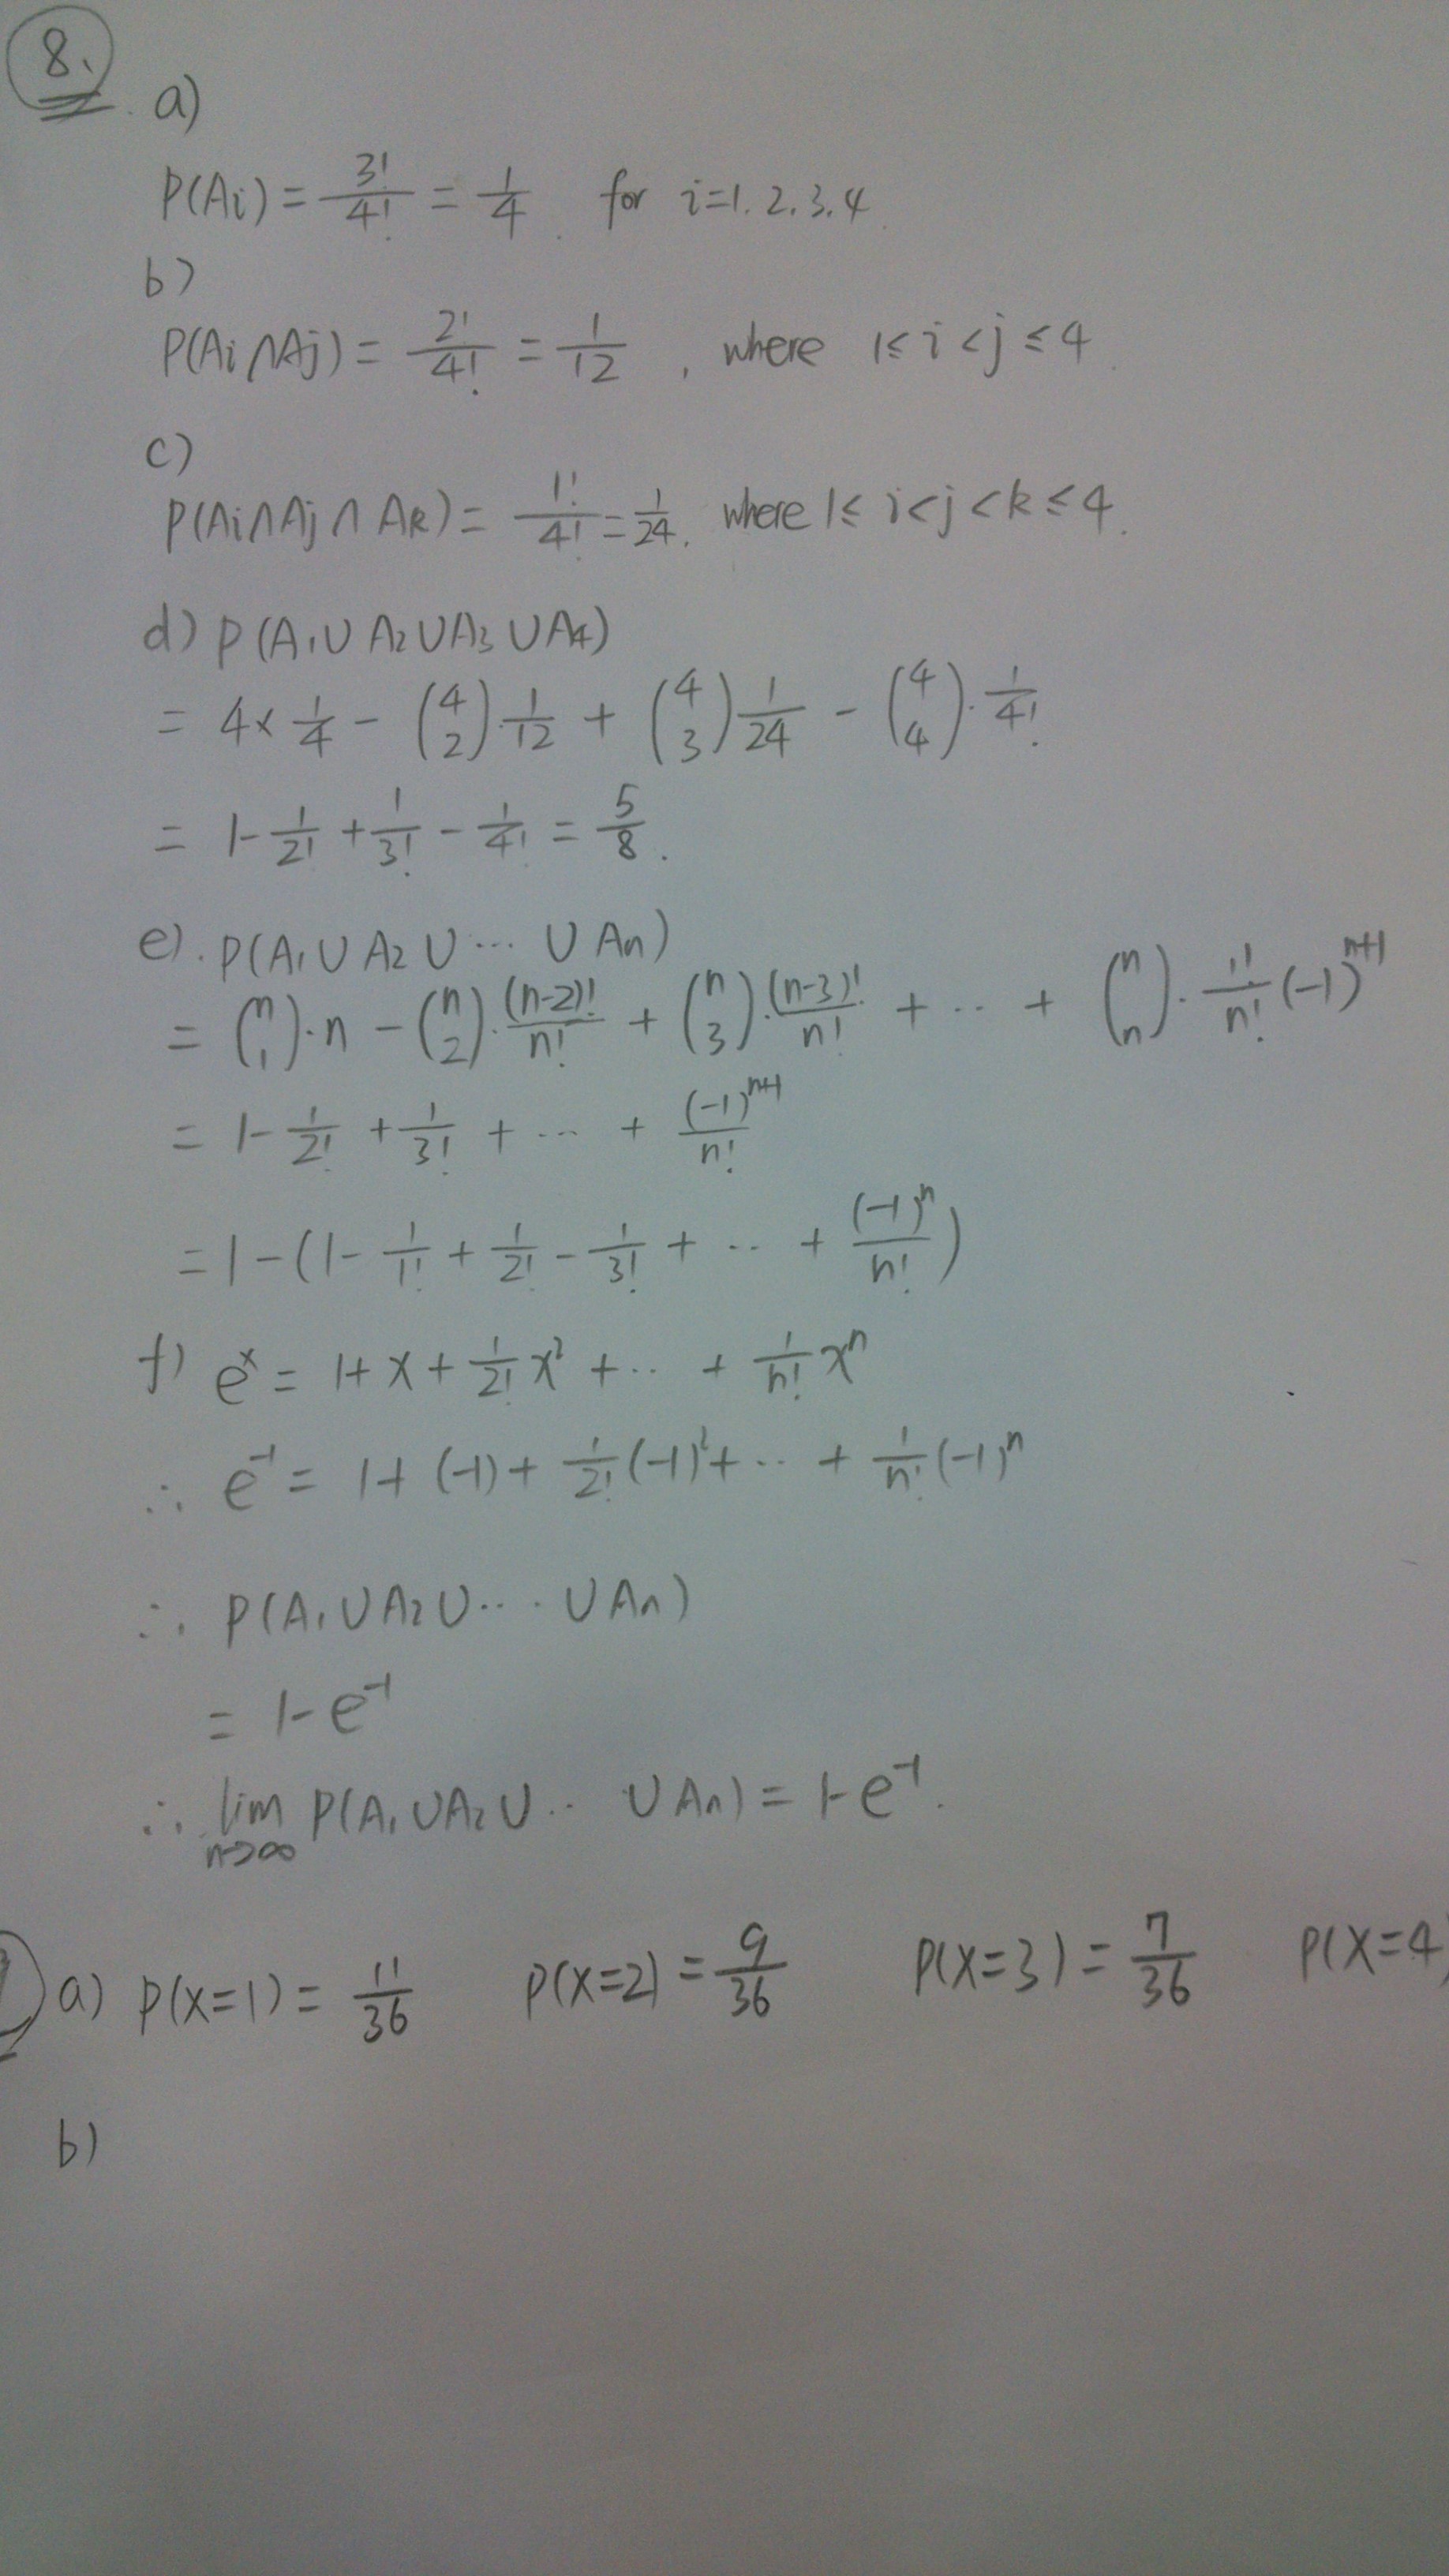 8.
a)
P(Ai) = 3!/4! = 1/4 for i=1.2.3.4
b)
P(Ai∩Aj) = 2!/4! = 1/12 , where 1≤i<j≤4
c)
P(Ai∩Aj∩Ak) = 1!/4! = 1/24. where 1≤i<j<k≤4.
d) P(A1∪A2∪A3∪A4)
= 4×1/4 - (4 2)·1/12 + (4 3)1/24 - (4 4)·1/4!
= 1-1/2!+1/3!-1/4! = 5/8.
e). P(A1∪A2∪···∪An)
= (n 1)·n - (n 2)·(n-2)!/n! + (n 3)·(n-3)!/n! + ·· + (n n)·1!/n!(-1)^n+1
= 1-1/2!+1/3!+ ··· + (-1)^n+1/n!
= 1-(1-1/1!+1/2!-1/3!+ ·· + (-1)^n/n!)
f) e^x = 1+x+1/2!x²+ ·· + 1/n!x^n
∴ e^-1 = 1+(-1)+1/2!(-1)²+ ·· + 1/n!(-1)^n
∴ P(A1∪A2∪···∪An)
= 1-e^-1
∴ lim n→∞ P(A1∪A2∪··∪An) = 1-e^-1.
a) P(X=1) = 11/36 P(X=2) = 9/36 P(X=3) = 7/36 P(X=4)
b)